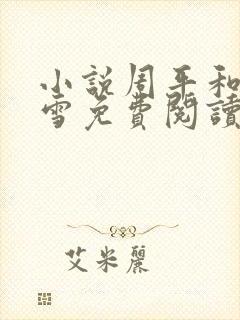 小說周平和
雪免費閱讀
艾米麗